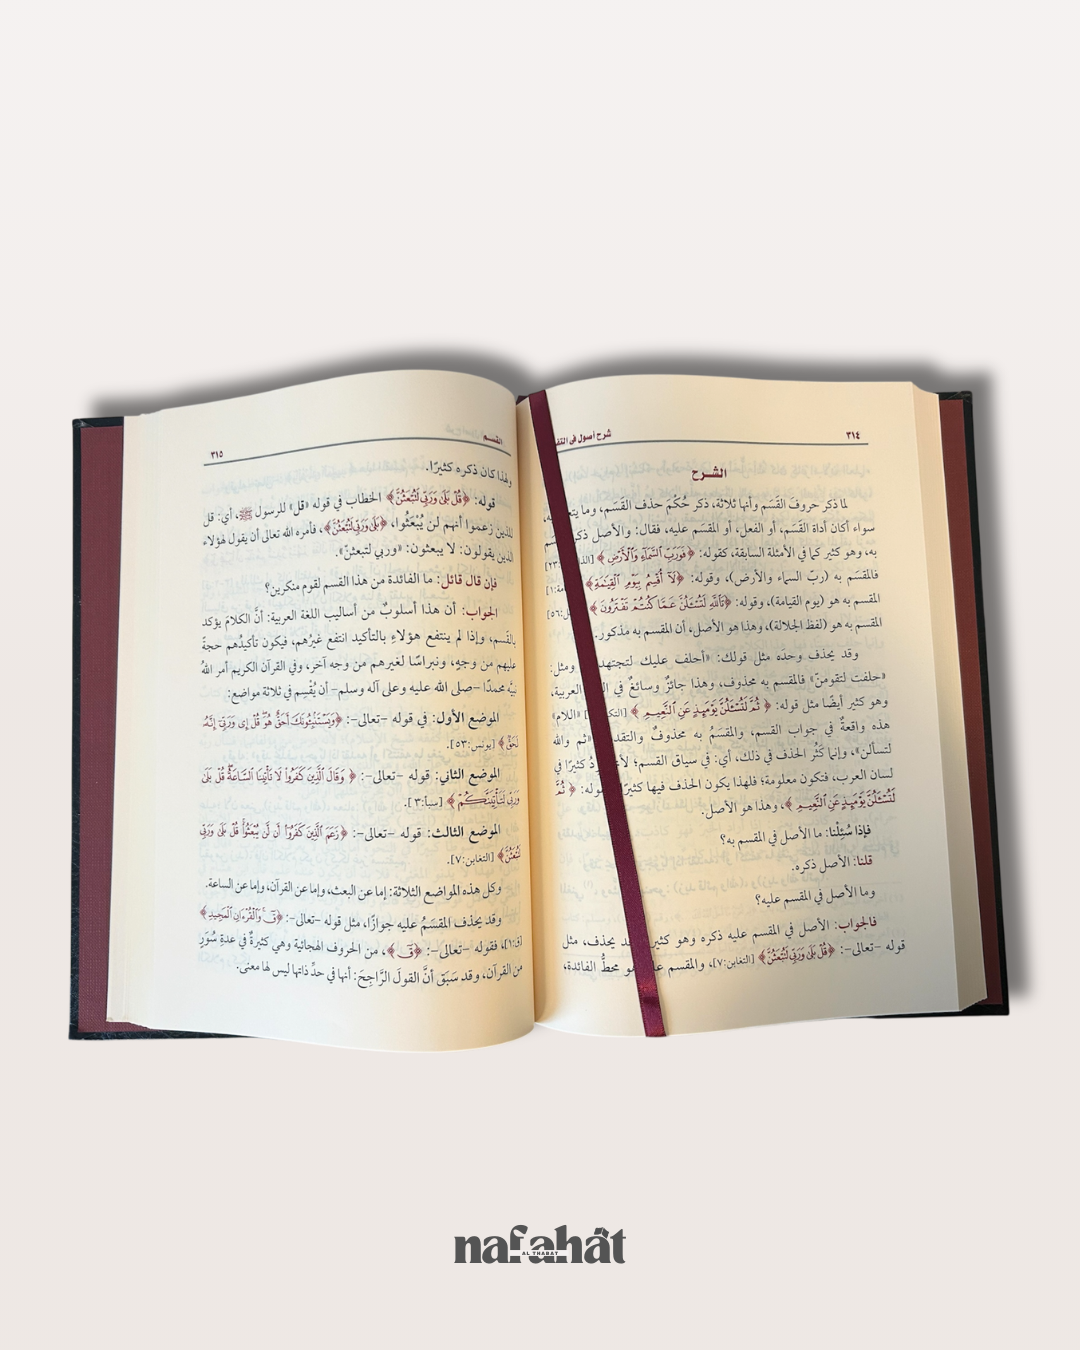 ٣١٤
شرح أصول في
الشرح
لما ذكر حروفَ القَسَم وأنها ثلاثة، ذكر حُكْمَ حذف القَسَم، وما
سواء أكان أداة القَسَم، أو الفعل، أو المقسَم عليه، فقال: والأصل
به، وهو كثير كما في الأمثلة السابقة، كقوله: ﴿فَوَرَبِّ ٱلسَّمَآءِ وَٱلۡأَرۡضِ﴾ ٢٣]
فالمقسَم به (ربّ السماء والأرض)، وقوله: ﴿لَآ أُقۡسِمُ بِيَوۡمِ ٱلۡقِيَٰمَةِ﴾ ١]
المقسَم به هو (يوم القيامة)، وقوله: ﴿تَٱللَّهِ لَتُسۡـَٔلُنَّ عَمَّا كُنتُمۡ تَفۡتَرُونَ﴾ ٥٦]
المقسَم به هو (لفظ الجلالة)، وهذا هو الأصل، أن المقسم به مذكور.
وقد يحذف وحده مثل قولك: «أحلف عليك لتجتهد ومثل:
«حلفت لتقومنّ» فالمقسم به محذوف، وهذا جائزٌ وسائغٌ في العربية،
وهو كثير أيضًا مثل قوله: ﴿ثُمَّ لَتُسۡـَٔلُنَّ يَوۡمَئِذٍ عَنِ ٱلنَّعِيمِ﴾ «اللام»
هذه واقعةٌ في جواب القسم، والمقسَمُ به محذوفٌ والتقد «ثم والله
لتسألن»، وإنما كَثُر الحذف في ذلك، أي: في سياق القسم؛ كثيرًا في
لسان العرب، فتكون معلومة؛ فلهذا يكون الحذف فيها كثيرًا ﴿ثُمَّ
لَتُسۡـَٔلُنَّ يَوۡمَئِذٍ عَنِ ٱلنَّعِيمِ﴾، وهذا هو الأصل.
فإذا سُئِلْنا: ما الأصل في المقسم به؟
قلنا: الأصل ذكره.
وما الأصل في المقسم عليه؟
فالجواب: الأصل في المقسم عليه ذكره وهو كثير يحذف، مثل
قوله –تعالى–: ﴿قُلۡ بَلَىٰ وَرَبِّي لَتُبۡعَثُنَّ﴾ [التغابن:٧]، والمقسم هو محطُّ الفائدة،
القسم
٣١٥
ولهذا كان ذكره كثيرًا.
قوله: ﴿قُلۡ بَلَىٰ وَرَبِّي لَتُبۡعَثُنَّ﴾ الخطاب في قوله «قل» للرسول ﷺ، أي: قل
للذين زعموا أنهم لن يُبْعَثُوا، ﴿بَلَىٰ وَرَبِّي لَتُبۡعَثُنَّ﴾، فأمره الله تعالى أن يقول لهؤلاء
الذين يقولون: لا يبعثون: «وربي لتبعثنّ».
فإن قال قائل: ما الفائدة من هذا القسم لقوم منكرين؟
الجواب: أن هذا أسلوبٌ من أساليب اللغة العربية: أنَّ الكلامَ يؤكد
بالقَسم، وإذا لم ينتفع هؤلاءِ بالتأكيد انتفع غيرُهم، فيكون تأكيدُهم حجةً
عليهم من وجهٍ، ونبراسًا لغيرهم من وجه آخر، وفي القرآن الكريم أمر اللهُ
نبيَّه محمدًا –صلى الله عليه وعلى آله وسلم– أن يُقْسِم في ثلاثة مواضع:
الموضع الأول: في قوله –تعالى–: ﴿وَيَسۡتَنۢبِـُٔونَكَ أَحَقٌّ هُوَۖ قُلۡ إِي وَرَبِّيٓ إِنَّهُۥ
لَحَقّٞ﴾ [يونس:٥٣].
الموضع الثاني: قوله –تعالى–: ﴿وَقَالَ ٱلَّذِينَ كَفَرُواْ لَا تَأۡتِينَا ٱلسَّاعَةُۖ قُلۡ بَلَىٰ
وَرَبِّي لَتَأۡتِيَنَّكُمۡ﴾ [سبأ:٣].
الموضع الثالث: قوله –تعالى–: ﴿زَعَمَ ٱلَّذِينَ كَفَرُوٓاْ أَن لَّن يُبۡعَثُواْۚ قُلۡ بَلَىٰ وَرَبِّي
لَتُبۡعَثُنَّ﴾ [التغابن:٧].
وكل هذه المواضع الثلاثة: إما عن البعث، وإما عن القرآن، وإما عن الساعة.
وقد يحذف المقسَمُ عليه جوازًا، مثل قوله –تعالى–: ﴿قٓۚ وَٱلۡقُرۡءَانِ ٱلۡمَجِيدِ﴾
[ق:١]، فقوله –تعالى–: ﴿قٓ﴾، من الحروف الهجائية وهي كثيرةٌ في عدةِ سُوَرٍ
من القرآن، وقد سَبَق أنَّ القولَ الرَّاجِحَ: أنها في حدِّ ذاتها ليس لها معنى.
nafahât
AL THABAT